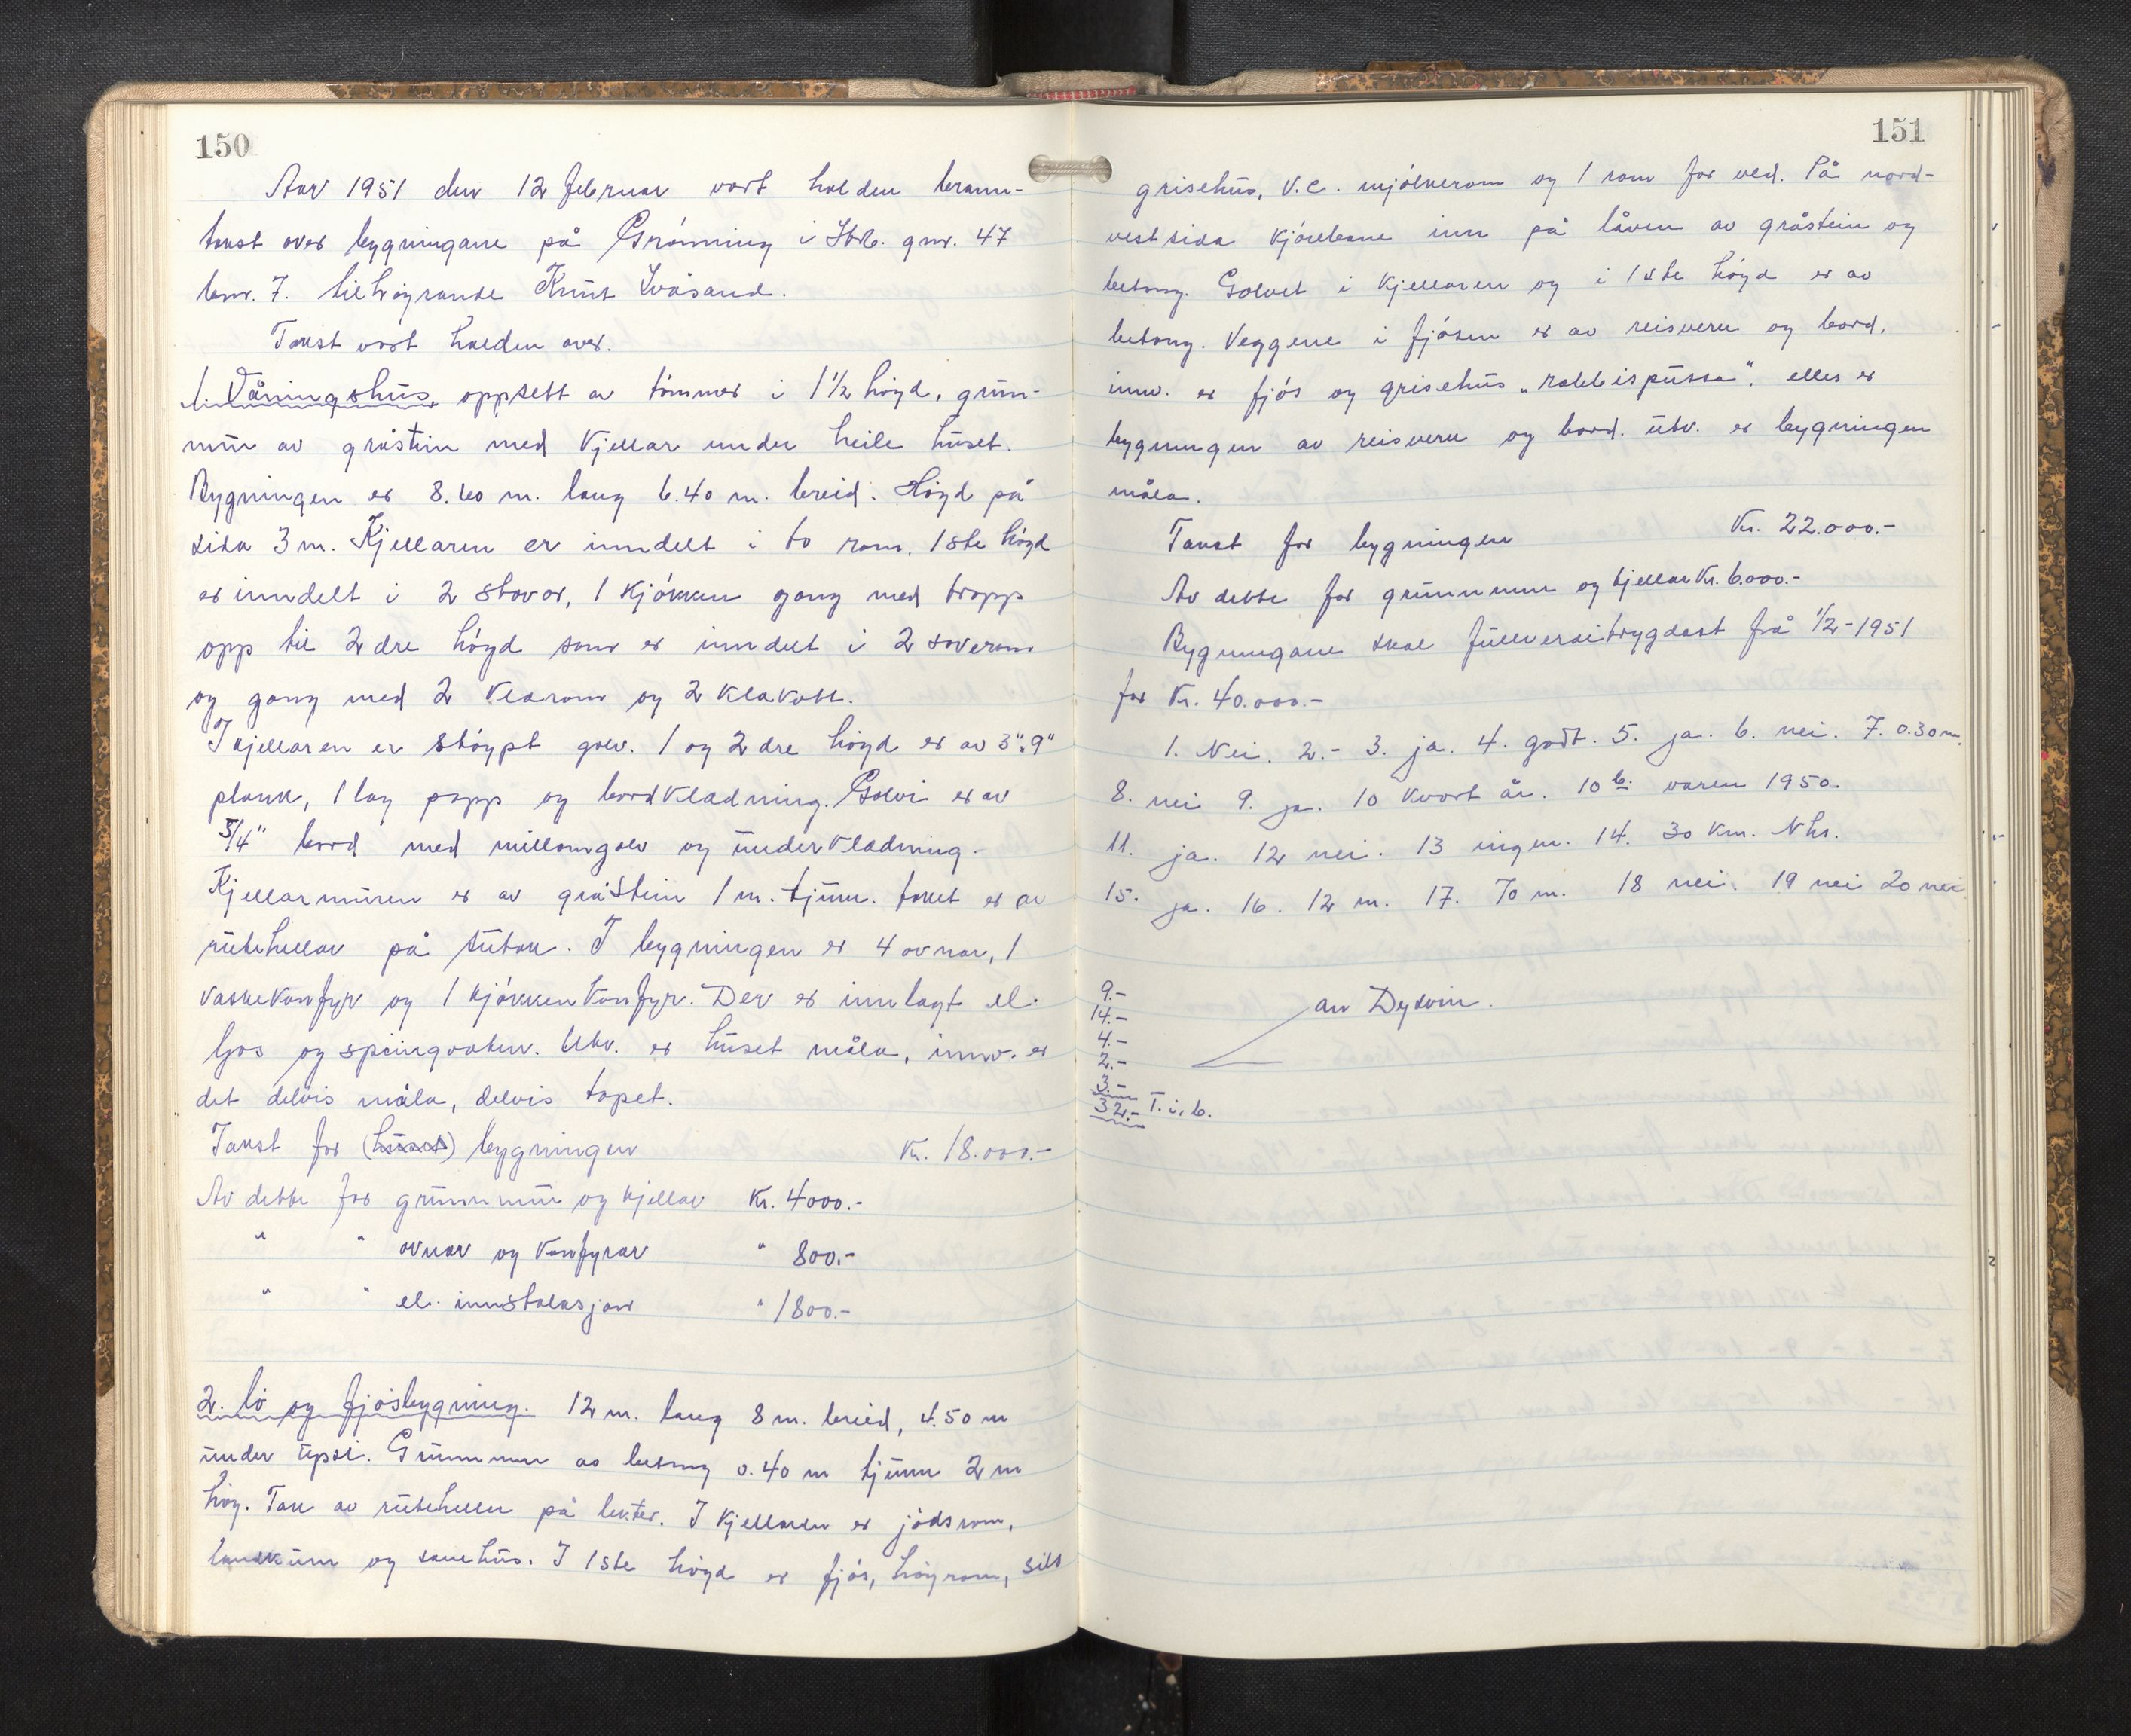 150
Aar 1951 den 12 februar vart halden brann-
takst over bygningane på Grønning i Hbb. gnr. 47
bnr. 7. tilhøyrande Knut Kvåsand.
Takst vart halden over.
1. Våningshus, oppsett av tømmer i 1 1/2 høgd, grun-
mur av gråstein med Kjellar under heile huset.
Bygningen er 8.60 m. lang 6.40 m. breid. Høgd på
sida 3 m. Kjellaren er inndelt i to rom, 1ste høgd
er inndelt i 2 stover, 1 Kjøkken gang med tropp
opp til 2dre høgd som er inndelt i 2 soverom
og gang med 2 klærom og 2 klekott.
I kjellaren er støypt golv. 1 og 2dre høgd er av 3"·9"
plank, 1 lag papp og bordkledning. Golvi er av
5/4" bord med millomgolv og underkledning.
Kjellarmuren er av gråstein 1 m. tjukk. taket er av
rutehellar på sutak. I bygningen er 4 ovnar, 1
vaskekomfyr og 1 kjøkkenkomfyr. Der er innlagt el.
ljos og springvatn. Utv. er huset måla, innv. er
det delvis måla, delvis tapet.
Takst for (huset) bygningen Kr. 18.000.-
Av dette for grunnmur og kjellar Kr. 4000.-
" " ovnar og komfyrar " 800.-
" " el. innstalasjon " 1800.-
2. Lø og fjøsbygning. 12 m. lang 8 m. breid, 4.50 m
under upsi. Grunnmur av betong 0.40 m tjukk 2 m
høg. Tak av rutehellar på lekter. I Kjellaren er jødsrom,
landkum og sauehus. I 1ste høgd er fjøs, høyrom, silo
151
grisehus, V.C. mjølkerom og 1 rom for ved. På nord-
vestsida Kjørebane inn på låven av gråstein og
betong. Golvet i Kjellaren og i 1ste høgd er av
betong. Veggene i fjøsen er av reisverk og bord.
innv. er fjøs og grisehus „rabbispussa". elles er
bygningen av reisverk og bord. utv. er bygningen
måla.
Takst for bygningen Kr. 22.000.-
Av dette for grunnmur og kjellar Kr. 6.000.-
Bygningane skal fullverditrygdast frå 1/2-1951
for Kr. 40.000.-
1. Nei. 2.- 3. ja. 4. godt. 5. ja. 6. nei. 7. 0.30 m.
8. nei 9. ja. 10 Kvart år. 10 b. våren 1950.
11. ja. 12 nei. 13 ingen. 14. 30 Km. Nhs.
15. ja. 16. 12 m. 17. 70 m. 18 nei. 19 nei 20 nei
9.-
14.- an Dysvin.
4.-
2.-
3.-
32.- T.i.b.